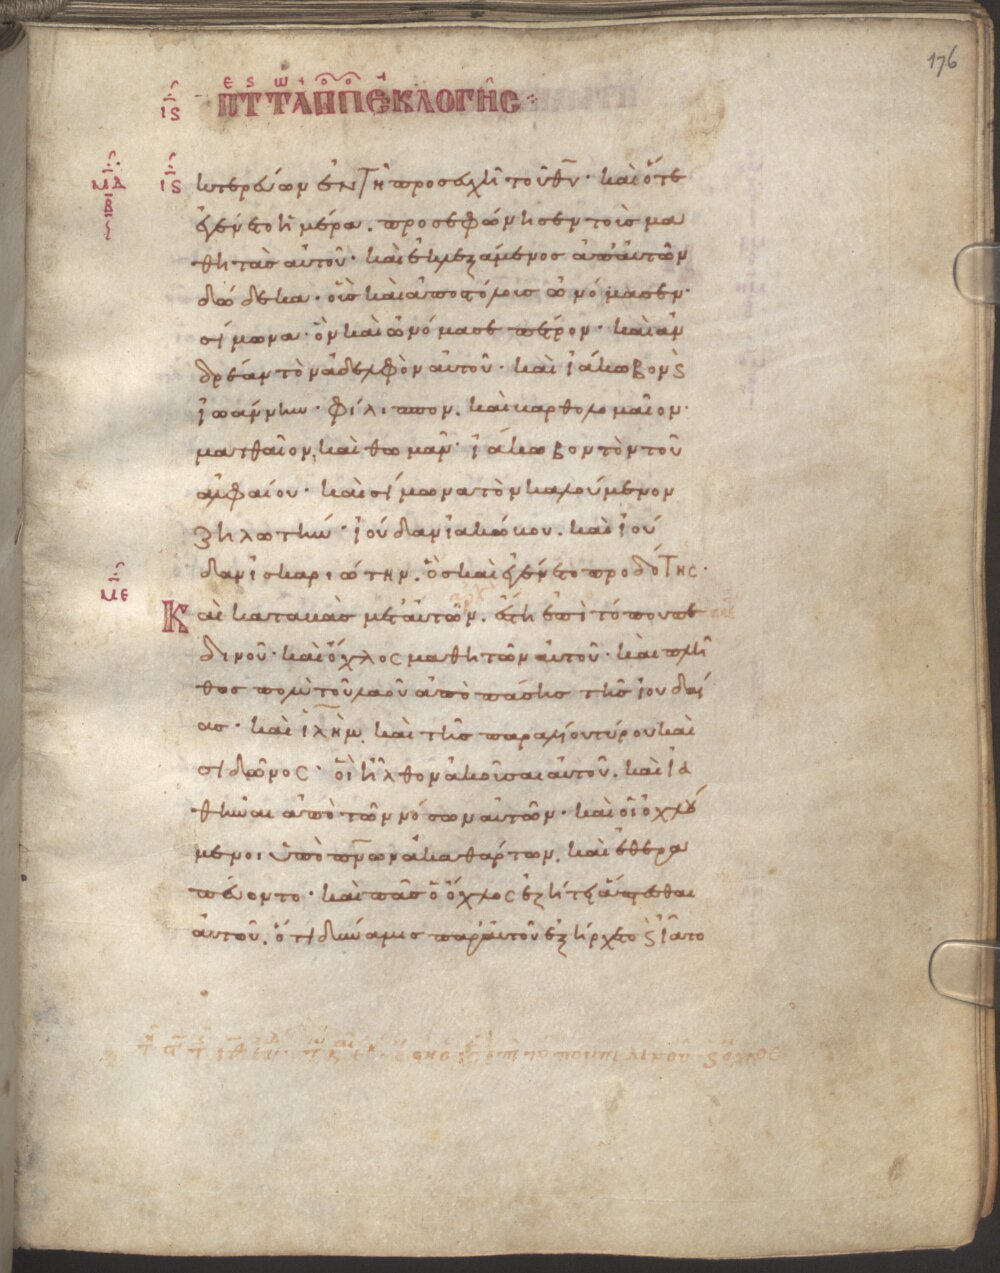 176
ΙϚ
ΚΤΕΡΕΎΩΝ ἐν τῆ προσευχῆ τοῦ θ̅υ̅· καὶ ὅτε
ἐγένετο ἡμέρα. προσεφώνησεν τοῖς μα
θητὰς αὐτοῦ· καὶ ἐκλεξάμενος ἀπ' αὐτῶν
δώδεκα· οὓς καὶ ἀποστόλους ὠνόμασεν·
σίμωνα· ὃν καὶ ὠνόμασε πέτρον· καὶ ἀν
δρέαν τὸν ἀδελφὸν αὐτοῦ· καὶ ἰάκωβον ϗ
ἰωάννην· φίλιππον. καὶ βαρθολομαῖον·
ματθαῖον, καὶ θωμᾶν· ἰάκωβον τὸν τοῦ
ἀλφαίου· καὶ σίμωνα τὸν καλούμενον
ζηλωτήν· ἰούδαν ἰακώβου. καὶ ἰού
δαν ἰσκαριώτην. ὃς καὶ ἐγένετο προδότης·
ΜΕ
Καὶ καταβὰς μετ' αὐτῶν. ἔστη ἐπὶ τόπου πε
δινοῦ· καὶ ὄχλος μαθητῶν αὐτοῦ· καὶ πλῆ
θος πολὺ τοῦ λαοῦ ἀπὸ πάσης τῆς ἰουδαί
ας· καὶ ἰλ̅η̅μ̅. καὶ τῆς παραλίου τύρου καὶ
σιδῶνος· οἳ ἦλθον ἀκοῦσαι αὐτοῦ. καὶ ἰα
θῆναι ἀπὸ τῶν νόσων αὐτῶν· καὶ οἱ ὀχλού
μενοι ὑπὸ πν̅ων ἀκαθάρτων. καὶ ἐθερα
πεύοντο· καὶ πᾶς ὁ ὄχλος ἐζήτει ἅπτεσθαι
αὐτοῦ. ὅτι δύναμις παρ' αὐτοῦ ἐξήρχετο ϗ ἰᾶτο